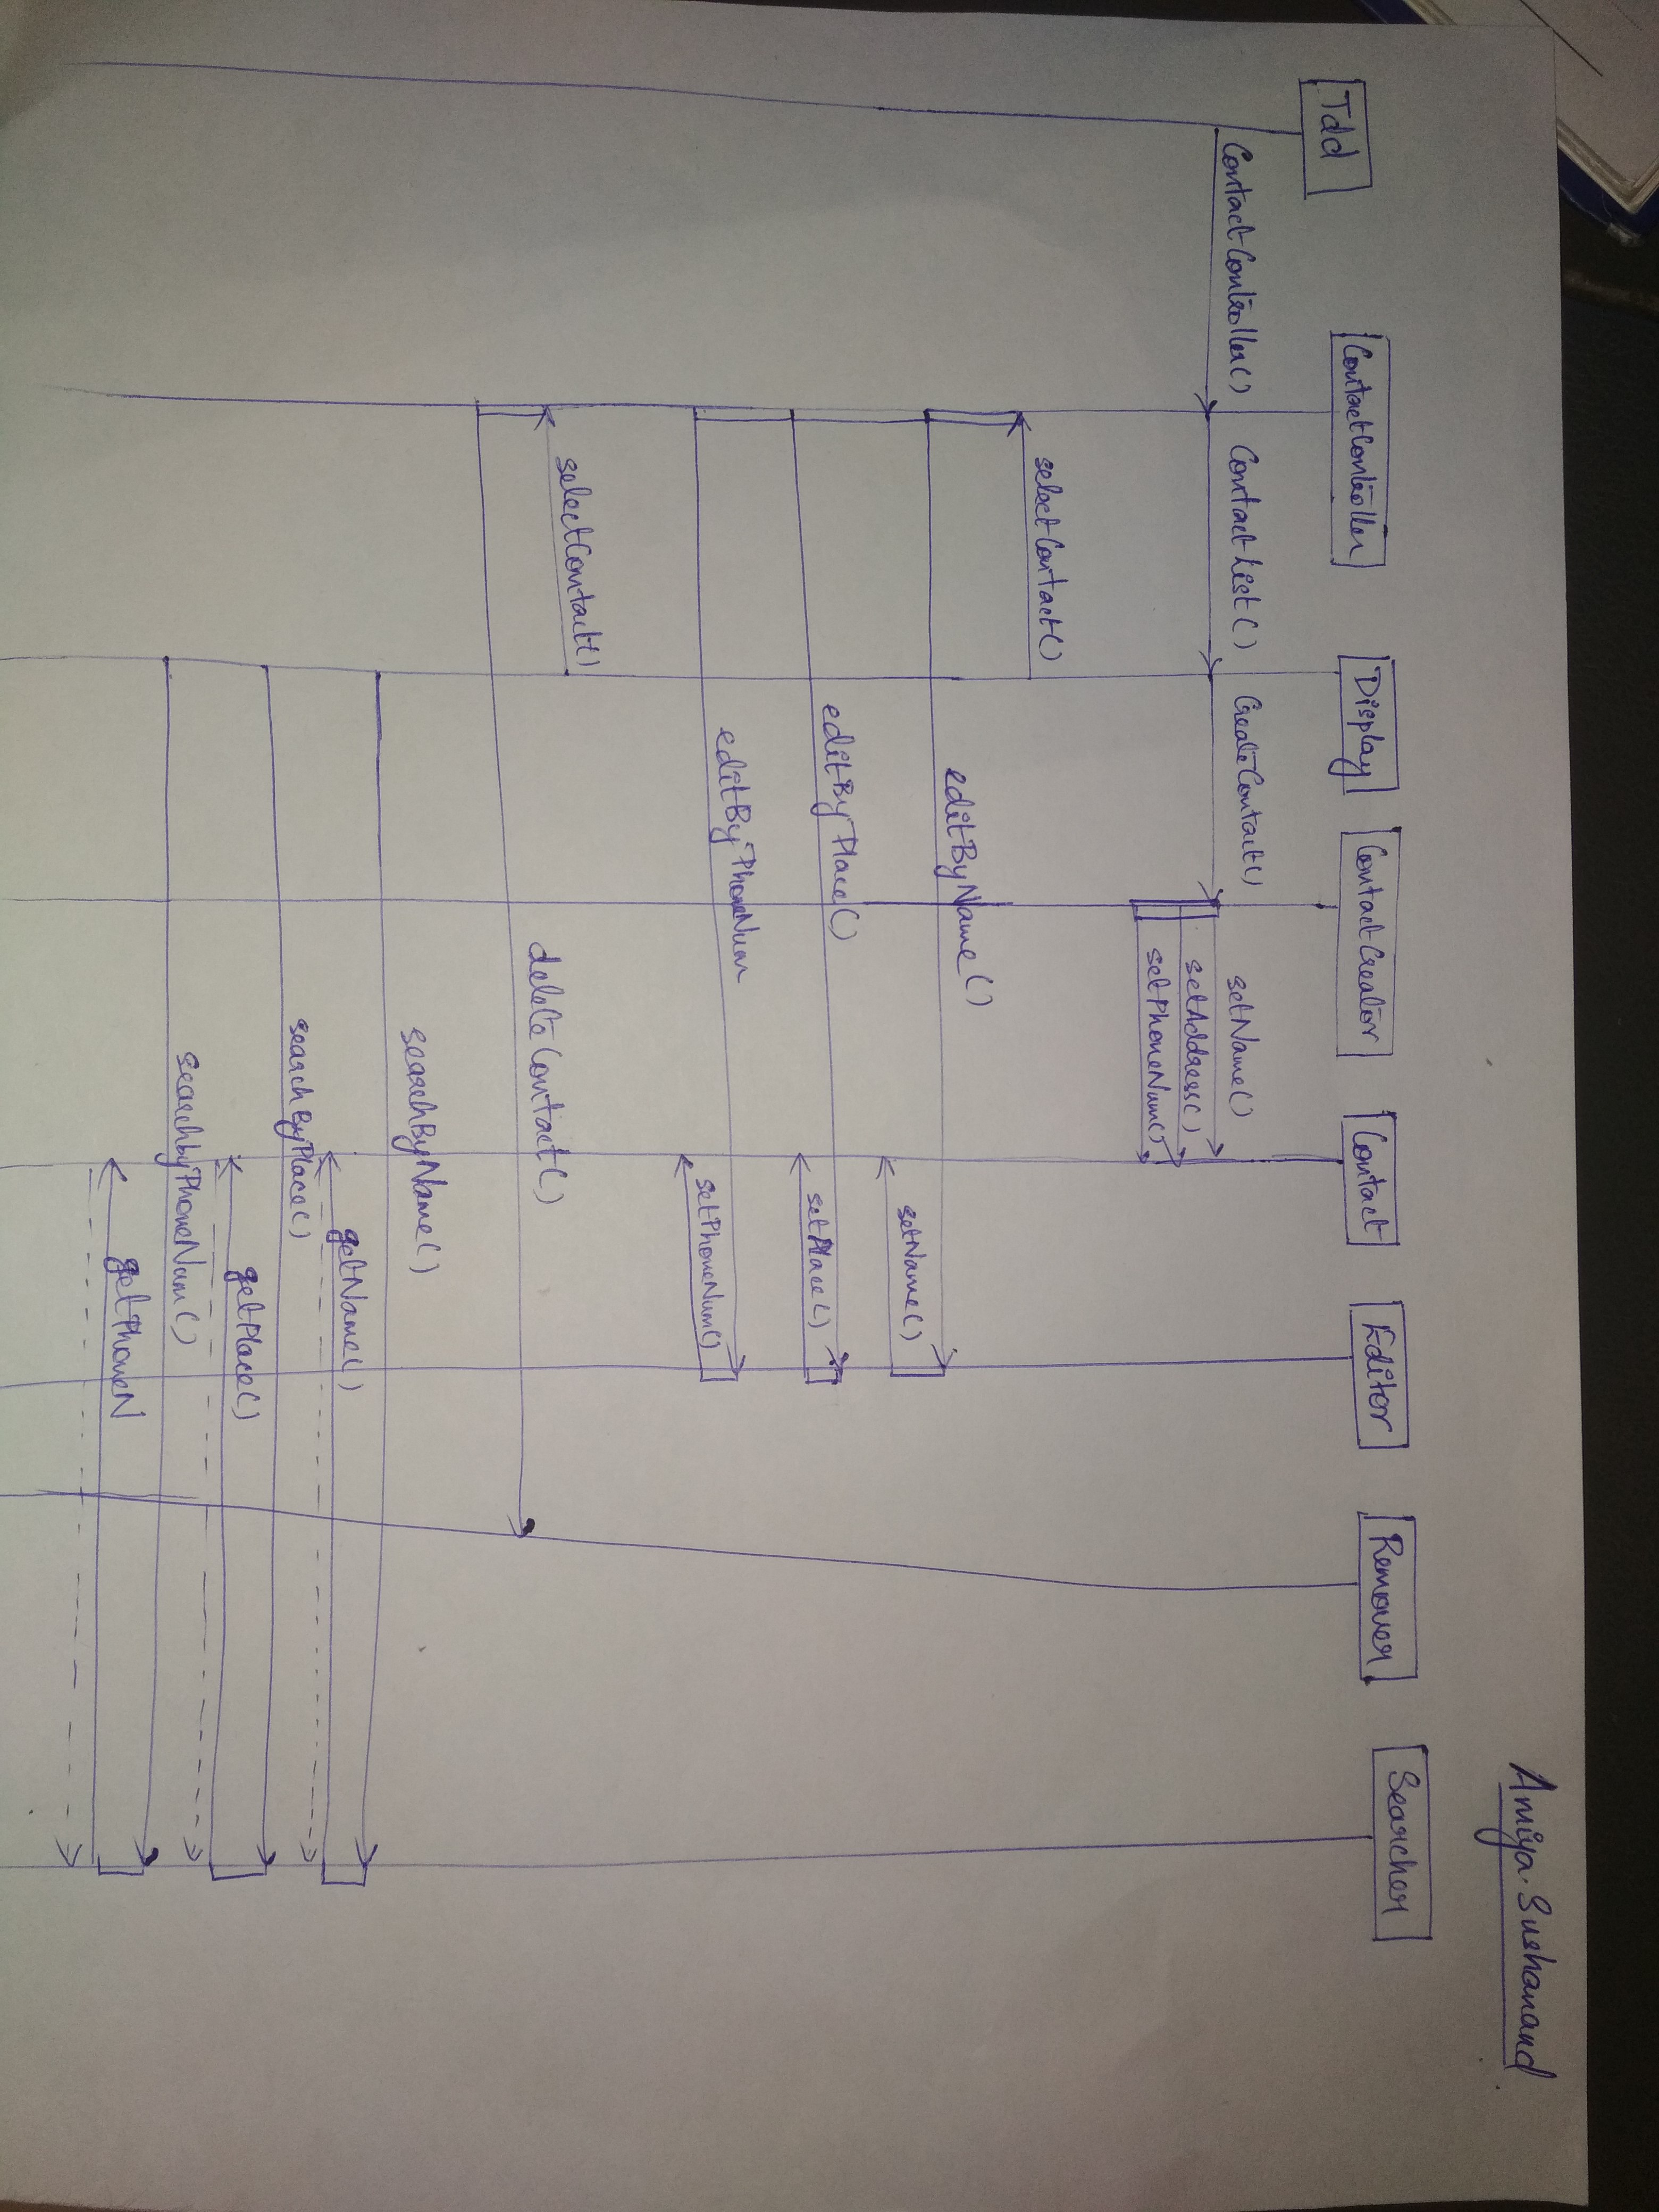 Amiya.Sushanand
Tdd
ContactController
Display
ContactCreator
Contact
Editor
Remover
Searcher
ContactController()
ContactList()
CreateContact()
setName()
setAddress()
setPhoneNum()
selectContact()
editByName()
setName()
editByPlace()
setPlace()
editByPhoneNum
setPhoneNum()
selectContact()
deleteContact()
searchByName()
getName()
searchByPlace()
getPlace()
searchbyPhoneNum()
getPhoneN